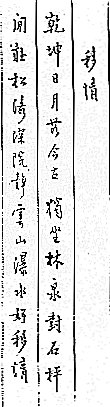 移情
乾坤日月無今古獨坐林泉對石枰
閒聽松濤深院靜雲山瀑水好移情